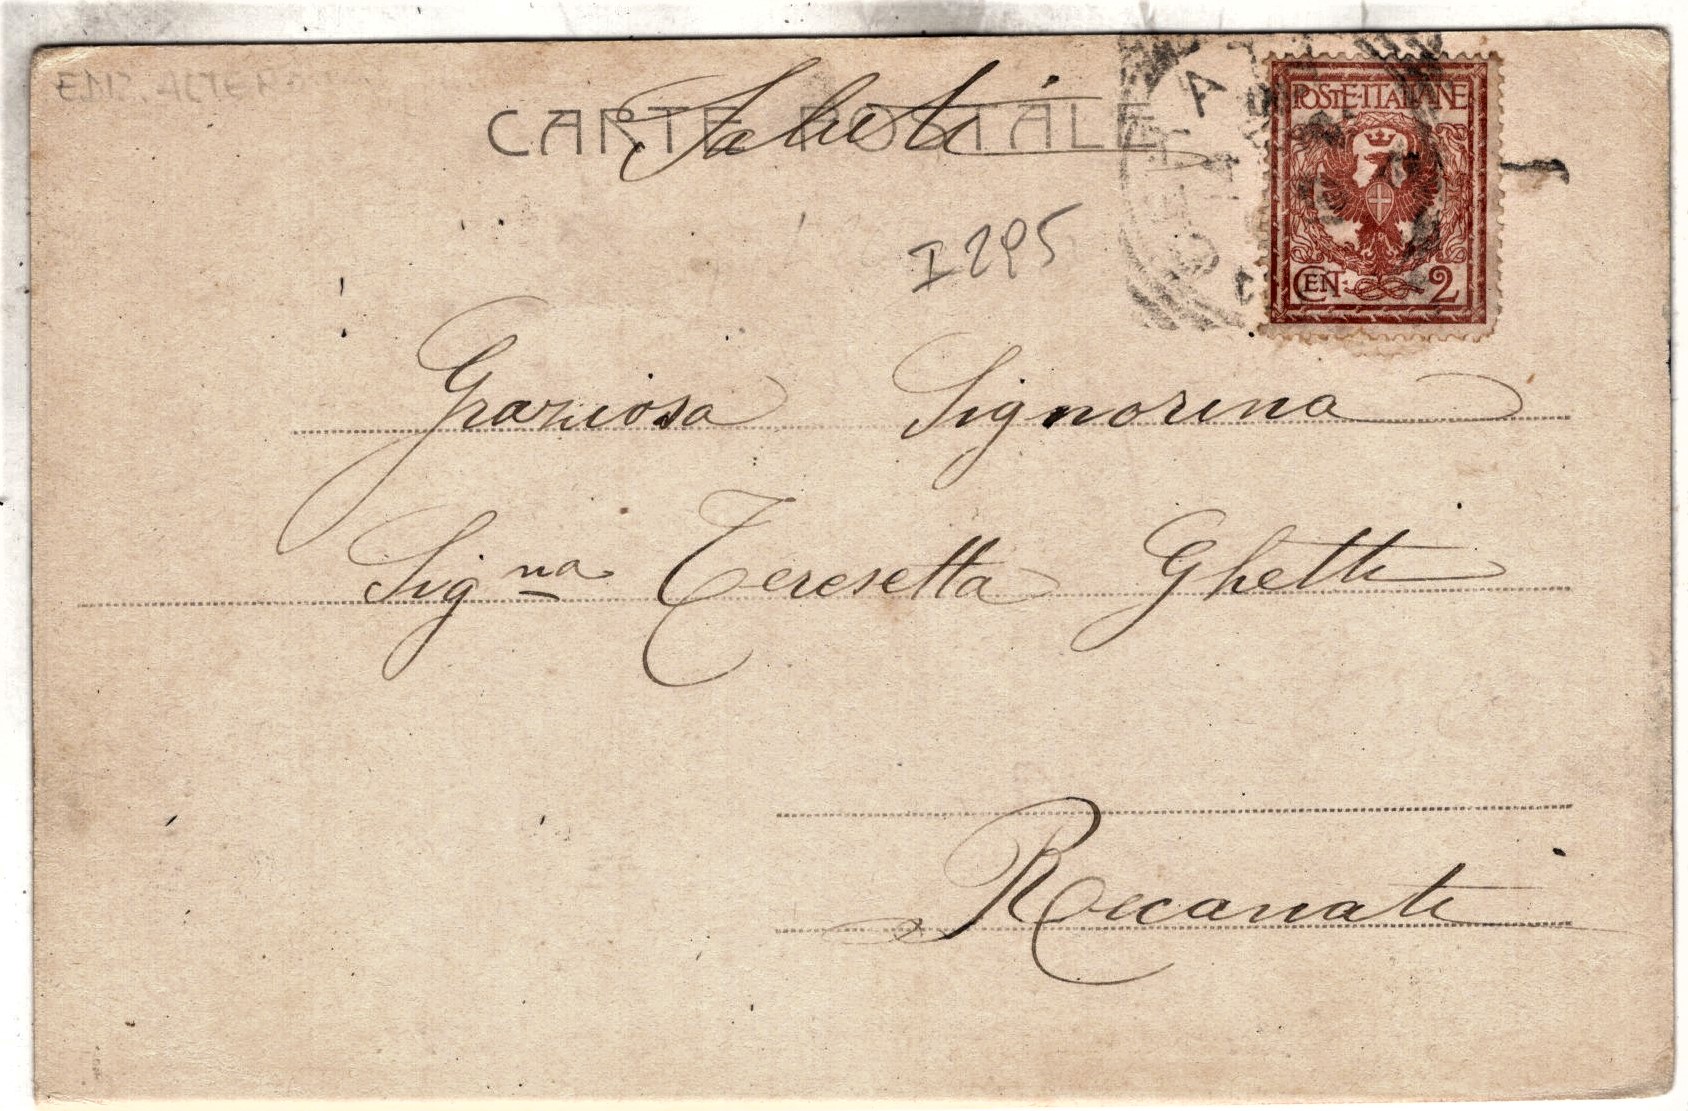 CARTE POSTALE
Saluti
POSTE·ITALIANE
CEN· 2
I 295
Graziosa Signorina
Sig.na Teresetta Ghetti
Recanati